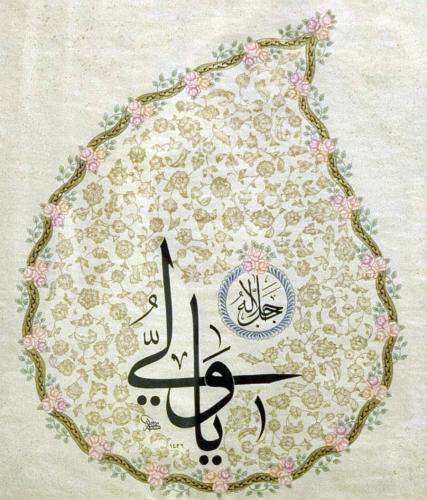 يا وليّ
جل جلاله
١٤٢٦